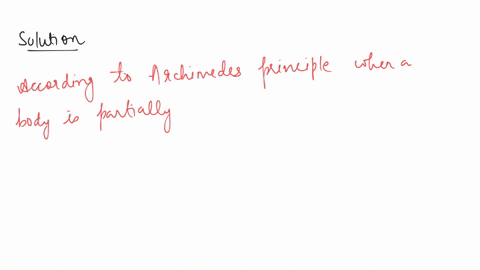 Solution
According to Archimedes principle when a
body is partially